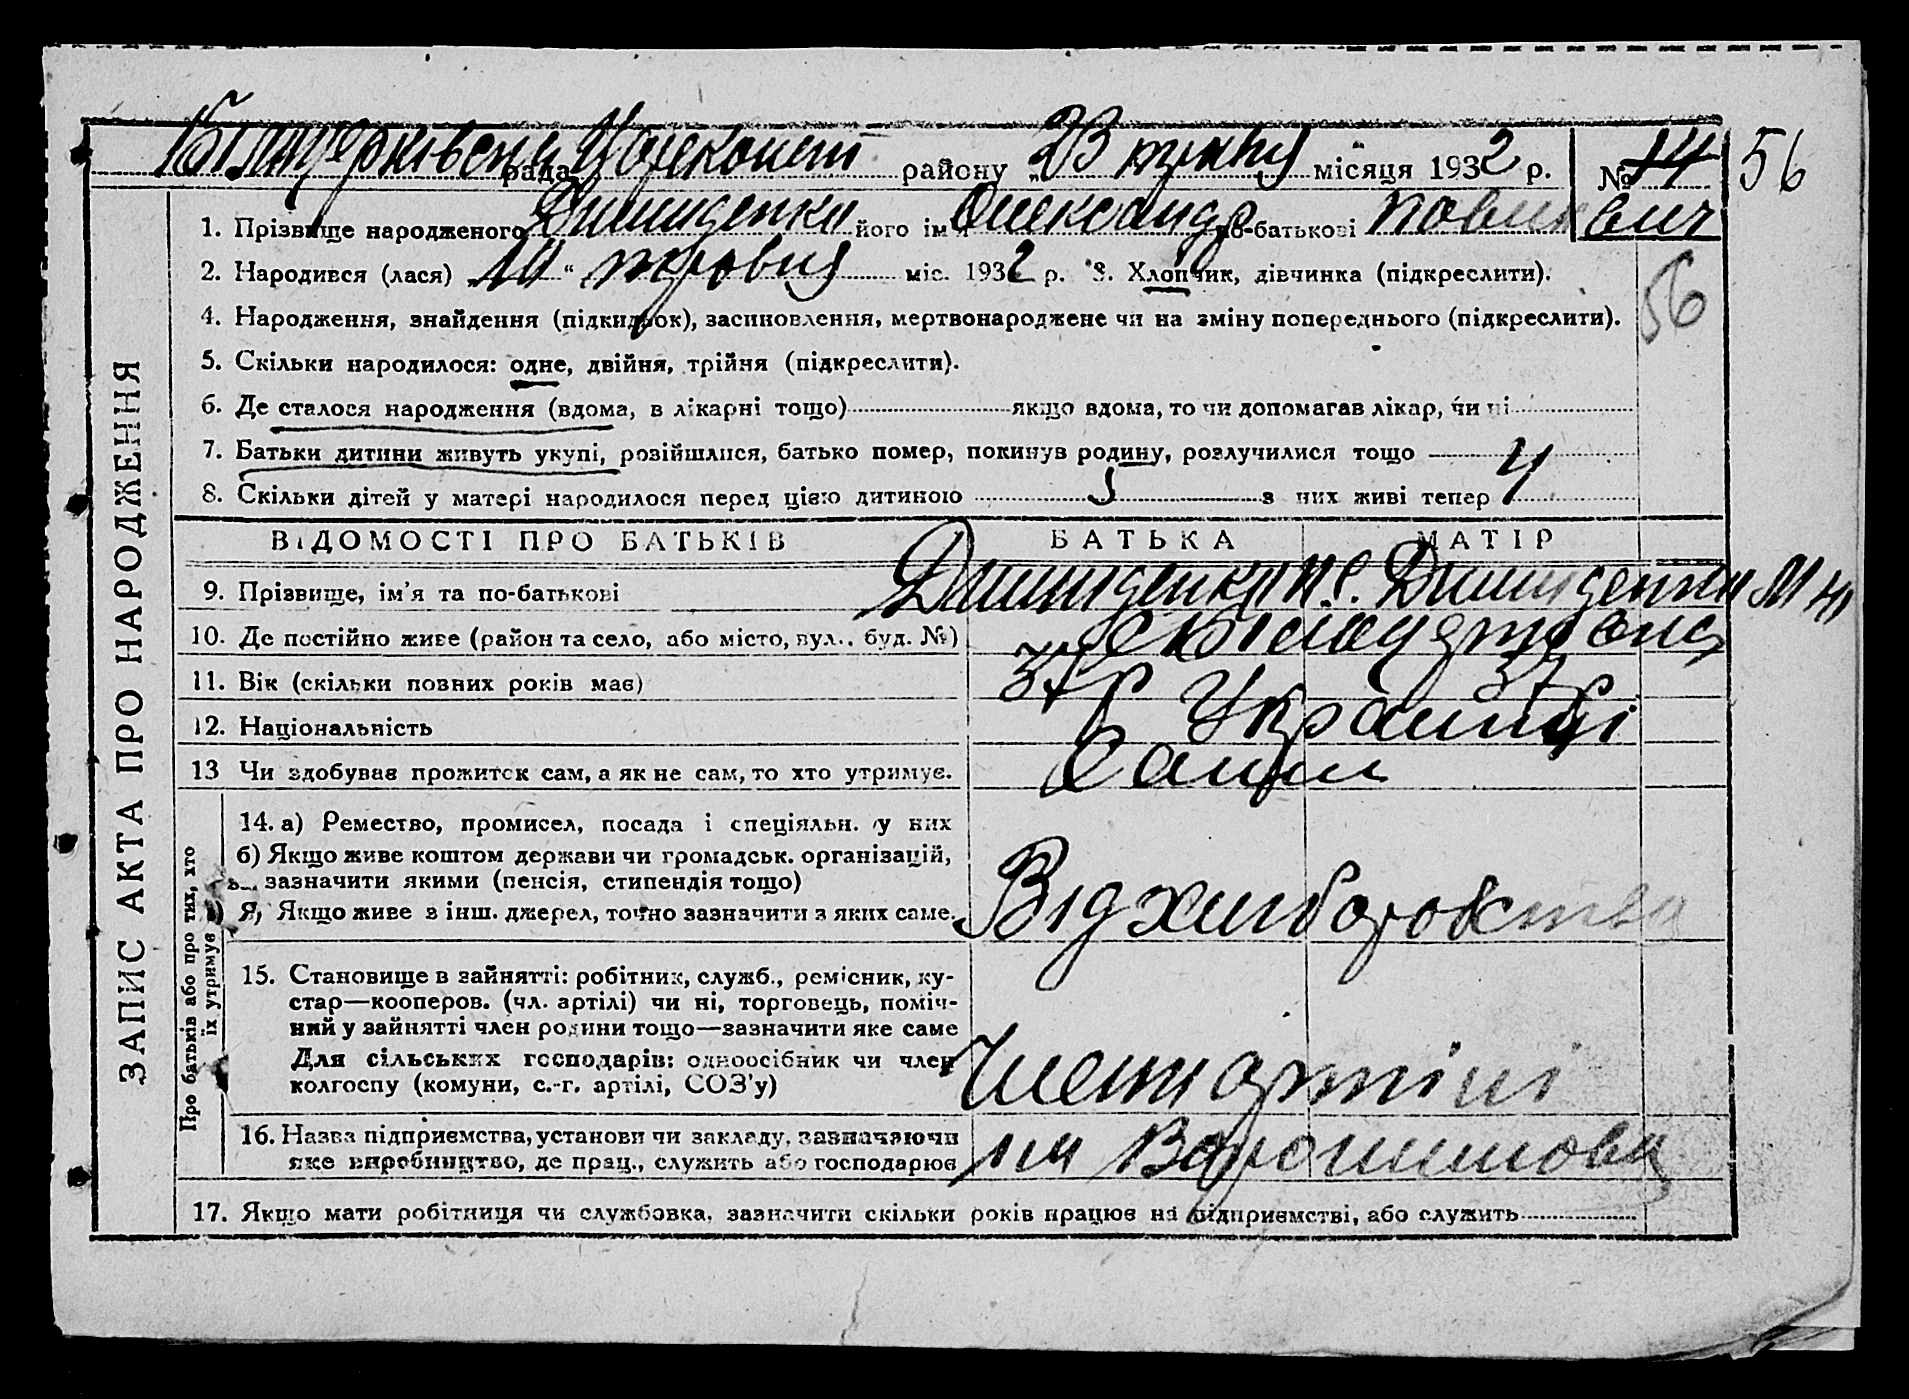 Білацерківська рада району 23 травня місяця 1932 р. № 14 56
1. Прізвище народженого його ім'я Олександр по-батькові Павлович
2. Народився (лася) „10“ травня міс. 1932 р. 3. Хлопчик, дівчинка (підкреслити).
56
4. Народження, знайдення (підкидьок), засиновлення, мертвонароджене чи на зміну попереднього (підкреслити).
5. Скільки народилося: одне, двійня, трійня (підкреслити).
6. Де сталося народження (вдома, в лікарні тощо) якщо вдома, то чи допомагав лікар, чи ні
7. Батьки дитини живуть укупі, розійшлися, батько помер, покинув родину, розлучилися тощо
8. Скільки дітей у матері народилося перед цією дитиною 5 з них живі тепер 4
ВІДОМОСТІ ПРО БАТЬКІВ БАТЬКА МАТІР
9. Прізвище, ім'я та по-батькові
10. Де постійно живе (район та село, або місто, вул., буд. №)
11. Вік (скільки повних років має) 37 р 37 р
12. Національність Українці
13 Чи здобував прожиток сам, а як не сам, то хто утримує. Сами
14. а) Ремество, промисел, посада і спеціяльн. у них
б) Якщо живе коштом держави чи громадськ. організацій,
зазначити якими (пенсія, стипендія тощо)
в) Якщо живе з інш. джерел, точно зазначити з яких саме. Від хліборобства
15. Становище в зайнятті: робітник, служб., ремісник, ку-
стар—кооперов. (чл. артілі) чи ні, торговець, поміч-
ний у зайнятті член родини тощо—зазначити яке саме
Для сільських господарів: одноосібник чи член
колгоспу (комуни, с.-г. артілі, СОЗ'у) Члени артілі
16. Назва підприємства, установи чи закладу, зазначаючи
яке виробництво, де прац., служить або господарює ім Ворошилова
17. Якщо мати робітниця чи службовка, зазначити скільки років працює на підприємстві, або служить
ЗАПИС АКТА ПРО НАРОДЖЕННЯ
Про батьків або про тих, хто
їх утримує